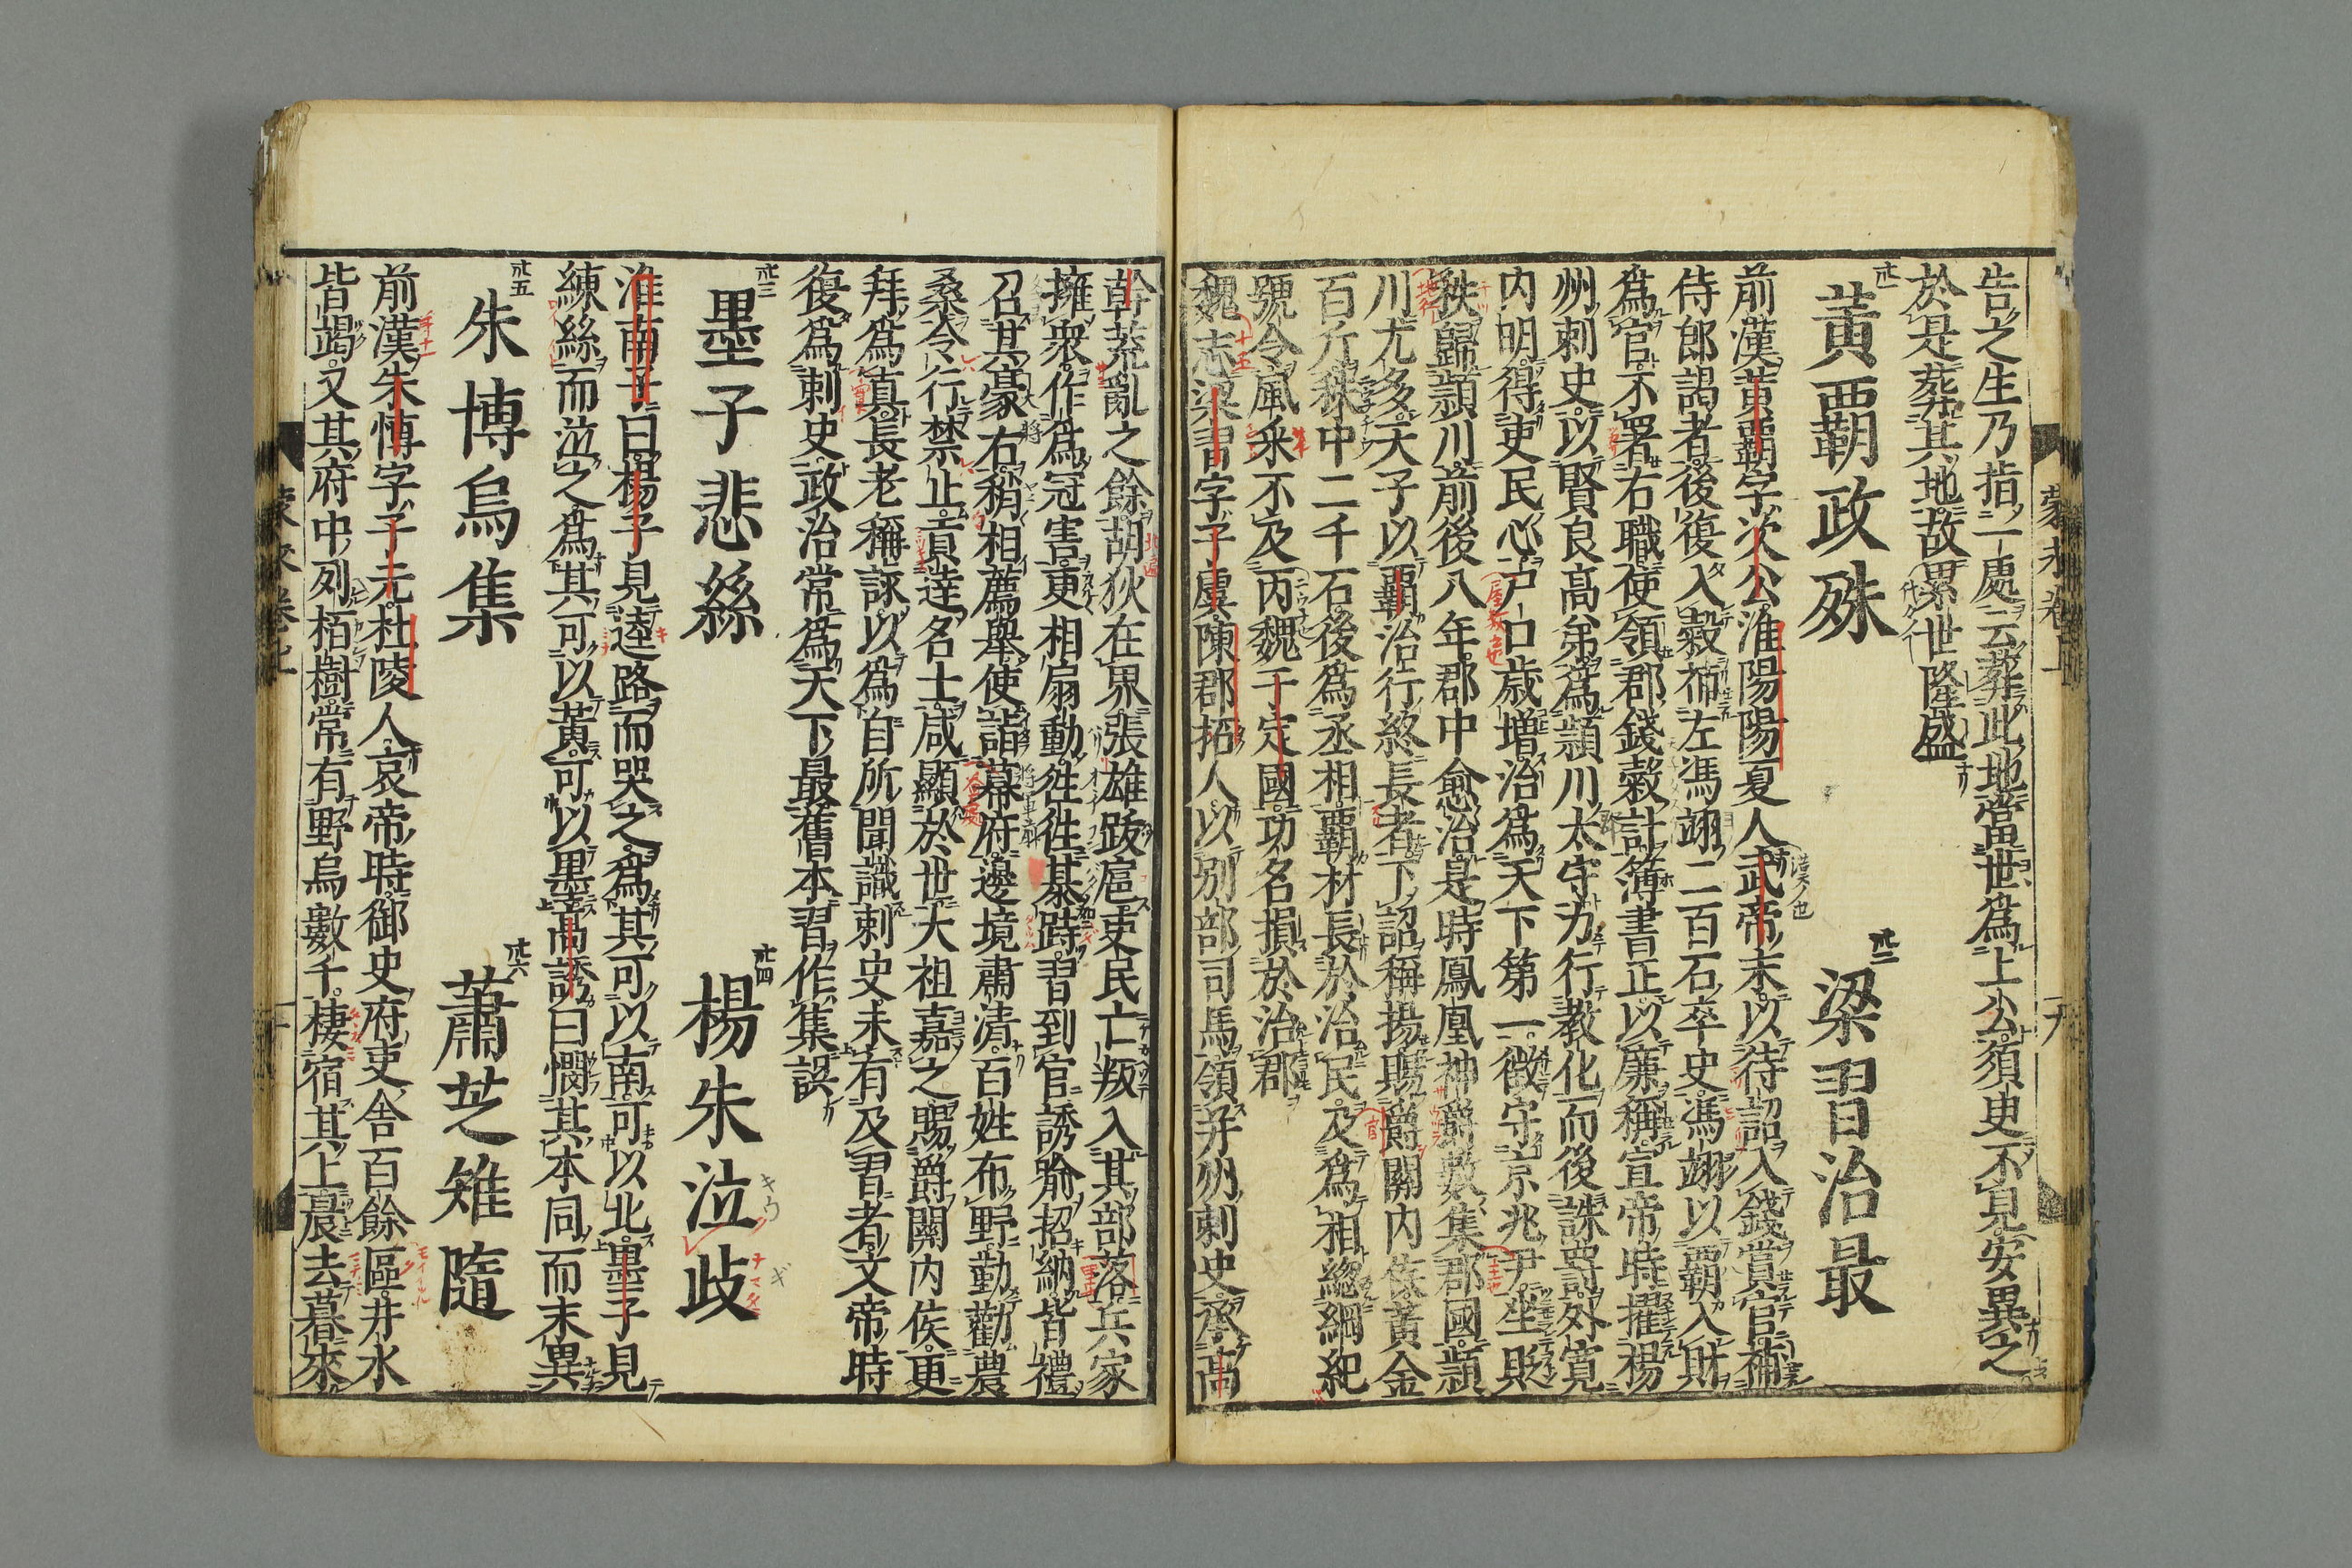 告之生乃指一處云葬此地當世爲上公須臾不見安異之
於是葬其地故累世隆盛
黃覇政殊 梁習治最
前漢黃覇字次公淮陽陽夏人武帝末以待詔入錢賞官補
侍郎謁者後復入穀補左馮翊二百石卒史馮翊以覇入財
爲官不署右職使領郡錢穀計簿書正以廉稱宣帝時擢楊
州刺史以賢良高弟爲潁川太守力行教化而後誅罸外寛
内明得吏民心戸口歳増治爲天下第一徵守京兆尹坐貶
秩歸潁川前後八年郡中愈治是時鳳凰神爵數集郡國潁
川尤多天子以覇治行終長者下詔稱揚賜爵關内侯黃金
百斤秩中二千石後爲丞相覇材長於治民及爲相緫綱紀
號令風采不及丙魏于定國功名損於治郡
魏志梁習字子虞陳郡柘人以別部司馬領并州刺史承高
幹荒亂之餘胡狄在界張雄跋扈吏民亡叛入其部落兵家
擁衆作爲冠害更相扇動徃徃棊跱習到官誘喻招納皆禮
召其豪右稍相薦舉使詣幕府邊境肅清百姓布野勤勸農
桑令行禁止貢達名士咸顯於世太祖嘉之賜爵關内侯更
拜爲真長老稱詠以爲自所聞識刺史未有及習者文帝時
復爲刺史政治常爲天下最舊本習作集誤
墨子悲絲 楊朱泣歧
淮南子曰楊子見逵路而哭之爲其可以南可以北墨子見
練絲而泣之爲其可以黃可以黒高誘曰憫其本同而末異
朱博烏集 蕭芝雉隨
前漢朱博字子元杜陵人哀帝時御史府吏舎百餘區井水
皆竭又其府中列栢樹常有野烏數千棲宿其上晨去暮來